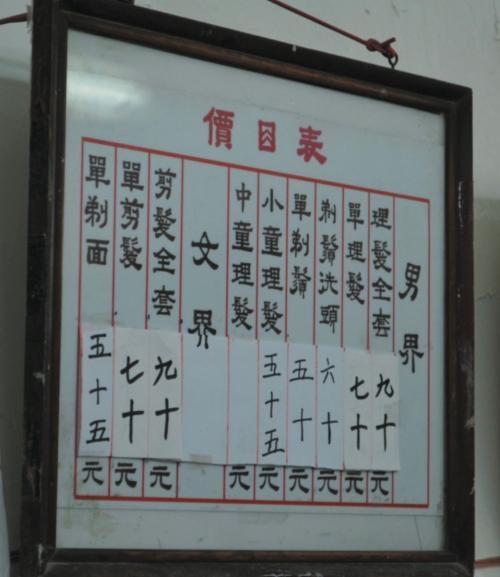 價目表
男界
理髮全套 九十元
單理髮 七十元
剃鬚洗頭 六十元
單剃鬚 五十元
小童理髮 五十五元
中童理髮 元
女界
剪髮全套 九十元
單剪髮 七十元
單剃面 五十五元